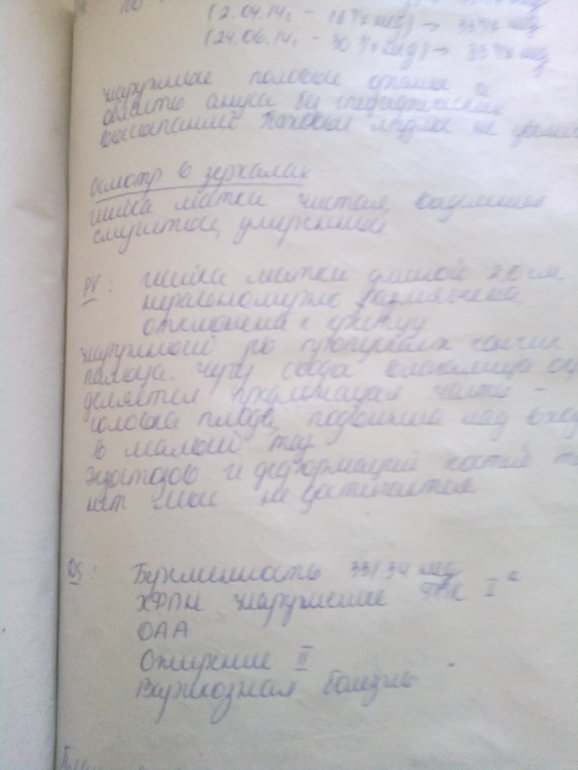 по
(2.04.14г - 16 ⅞ нед) → 33 ⅞ нед
(24.06.14г - 30 ⅞ нед) → 33 ⅞ нед
наружные половые органы и
область ануса без специфических
высыпаний. Паховые лимфоузлы не
Осмотр в зеркалах
шейка матки чистая, выделения
слизистые, умеренные
PV: шейка матки длиной 2,0 см,
неравномерно размягчена,
отклонена к крестцу
наружный зев пропускает кончик
пальца. Через своды влагалища
деляется предлежащая часть -
головка плода, подвижна над входом
в малый таз
Экзостозов и деформаций костей таза
нет. Мыс не достигается
DS: Беременность 33/34 нед
ХФПН нарушение I а
ОАА
Ожирение II
Варикозная болезнь